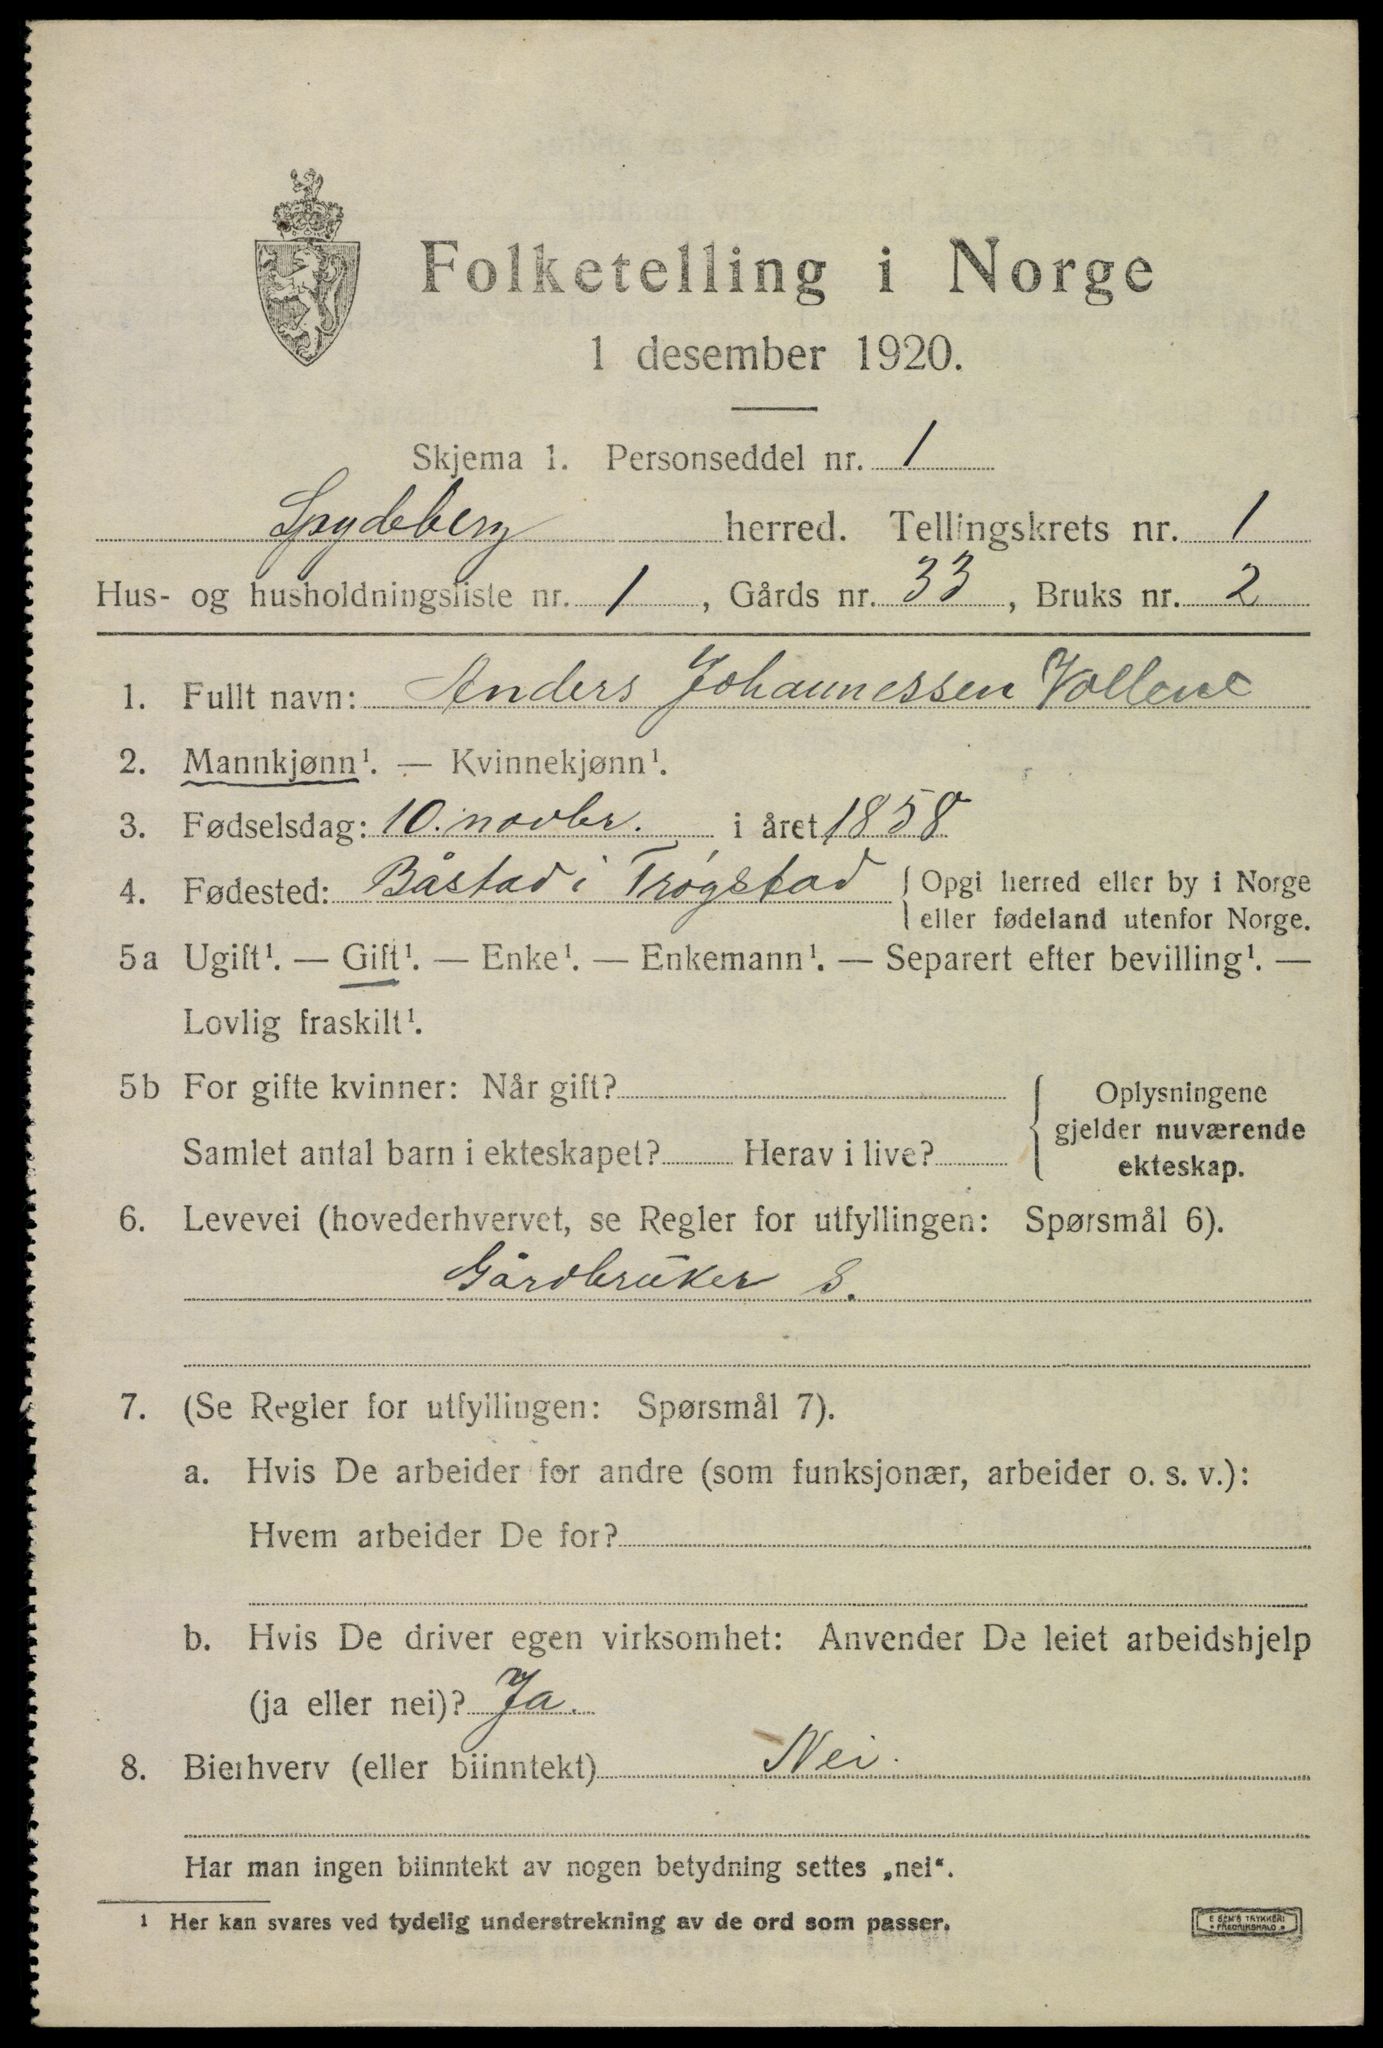 Folketelling i Norge
1 desember 1920.
Skjema 1. Personseddel nr. 1
Spydeberg herred. Tellingskrets nr. 1
Hus- og husholdningsliste nr. 1, Gårds nr. 33, Bruks nr. 2
1. Fullt navn: Anders Johannessen Vollene
2. Mannkjønn¹. — Kvinnekjønn¹.
3. Fødselsdag: 10. novbr. i året 1858
4. Fødested: Båstad i Trøgstad { Opgi herred eller by i Norge
eller fødeland utenfor Norge.
5a Ugift¹. — Gift¹. — Enke¹. — Enkemann¹. — Separert efter bevilling¹. —
Lovlig fraskilt¹.
5b For gifte kvinner: Når gift? { Oplysningene
gjelder nuværende
Samlet antal barn i ekteskapet? Herav i live?
ekteskap.
6. Levevei (hovederhvervet, se Regler for utfyllingen: Spørsmål 6).
Gårdbruker S.
7. (Se Regler for utfyllingen: Spørsmål 7).
a. Hvis De arbeider for andre (som funksjonær, arbeider o. s. v.):
Hvem arbeider De for?
b. Hvis De driver egen virksomhet: Anvender De leiet arbeidshjelp
(ja eller nei)? Ja.
8. Bierhverv (eller biinntekt) Nei.
Har man ingen biinntekt av nogen betydning settes „nei“.
¹ Her kan svares ved tydelig understrekning av de ord som passer.
E SEM'S TRYKKERI
FREDRIKSHALD